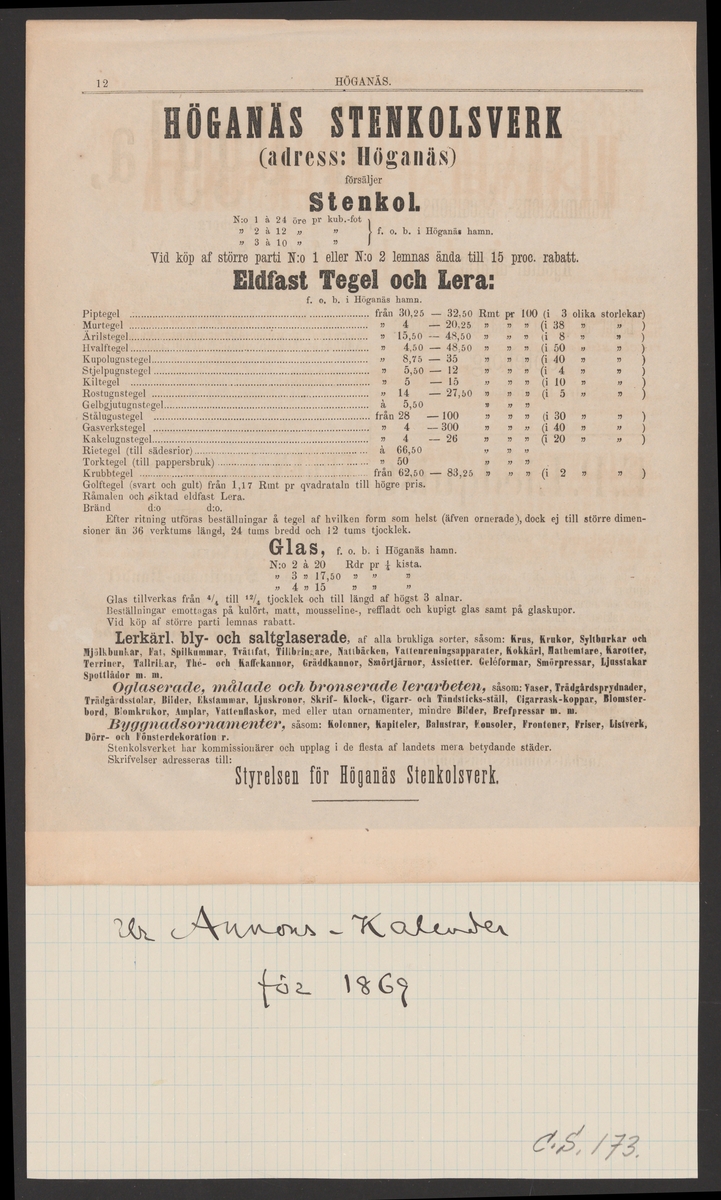 12 HÖGANÄS.
HÖGANÄS STENKOLSVERK
(adress: Höganäs)
försäljer
Stenkol.
N:o 1 à 24 öre pr kub.-fot
„ 2 à 12 „ „ } f. o. b. i Höganäs hamn.
„ 3 à 10 „ „
Vid köp af större parti N:o 1 eller N:o 2 lemnas ända till 15 proc. rabatt.
Eldfast Tegel och Lera:
f. o. b. i Höganäs hamn.
Piptegel från 30,25 — 32,50 Rmt pr 100 (i 3 olika storlekar)
Murtegel „ 4 — 20,25 „ „ „ (i 38 „ „ )
Ärilstegel „ 15,50 — 48,50 „ „ „ (i 8 „ „ )
Hvalftegel „ 4,50 — 48,50 „ „ „ (i 50 „ „ )
Kupolugnstegel „ 8,75 — 35 „ „ „ (i 40 „ „ )
Stjelpugnstegel „ 5,50 — 12 „ „ „ (i 4 „ „ )
Kiltegel „ 5 — 15 „ „ „ (i 10 „ „ )
Rostugnstegel „ 14 — 27,50 „ „ „ (i 5 „ „ )
Gelbgjutugnstegel à 5,50 „ „ „
Stålugnstegel från 28 — 100 „ „ „ (i 30 „ „ )
Gasverkstegel „ 4 — 300 „ „ „ (i 40 „ „ )
Kakelugnstegel „ 4 — 26 „ „ „ (i 20 „ „ )
Rietegel (till sädesrior) à 66,50 „ „ „
Torktegel (till pappersbruk) „ 50 „ „ „
Krubbtegel från 62,50 — 83,25 „ „ „ (i 2 „ „ )
Golftegel (svart och gult) från 1,17 Rmt pr qvadrataln till högre pris.
Råmalen och siktad eldfast Lera.
Bränd d:o d:o.
Efter ritning utföras beställningar å tegel af hvilken form som helst (äfven ornerade), dock ej till större dimen-
sioner än 36 verktums längd, 24 tums bredd och 12 tums tjocklek.
Glas, f. o. b. i Höganäs hamn.
N:o 2 à 20 Rdr pr ¼ kista.
„ 3 „ 17,50 „ „ „
„ 4 „ 15 „ „ „
Glas tillverkas från 4/4 till 12/4 tjocklek och till längd af högst 3 alnar.
Beställningar emottagas på kulört, matt, mousseline-, reffladt och kupigt glas samt på glaskupor.
Vid köp af större parti lemnas rabatt.
Lerkärl. bly- och saltglaserade, af alla brukliga sorter, såsom: Krus, Krukor, Syltburkar och
Mjölkbunkar, Fat, Spilkummar, Tvättfat, Tillbringare, Nattbäcken, Vattenreningsapparater, Kokkärl, Mathemtare, Karotter,
Terriner, Tallrikar, Thé- och Kaffekannor, Gräddkannor, Smörtjärnor, Assietter. Geléformar, Smörpressar, Ljusstakar
Spottlådor m. m.
Oglaserade, målade och bronserade lerarbeten, såsom: Vaser, Trädgårdsprydnader,
Trädgårdsstolar, Bilder, Ekstammar, Ljuskronor, Skrif- Klock-, Cigarr- och Tändsticks-ställ, Cigarrask-koppar, Blomster-
bord, Blomkrukor, Amplar, Vattenflaskor, med eller utan ornamenter, mindre Bilder, Brefpressar m. m.
Byggnadsornamenter, såsom: Kolonner, Kapiteler, Balustrar, Konsoler, Frontoner, Friser, Listverk,
Dörr- och Fönsterdekoration r.
Stenkolsverket har kommissionärer och upplag i de flesta af landets mera betydande städer.
Skrifvelser adresseras till:
Styrelsen för Höganäs Stenkolsverk.
Ur Annons-Kalender
för 1869
C.S. 173.